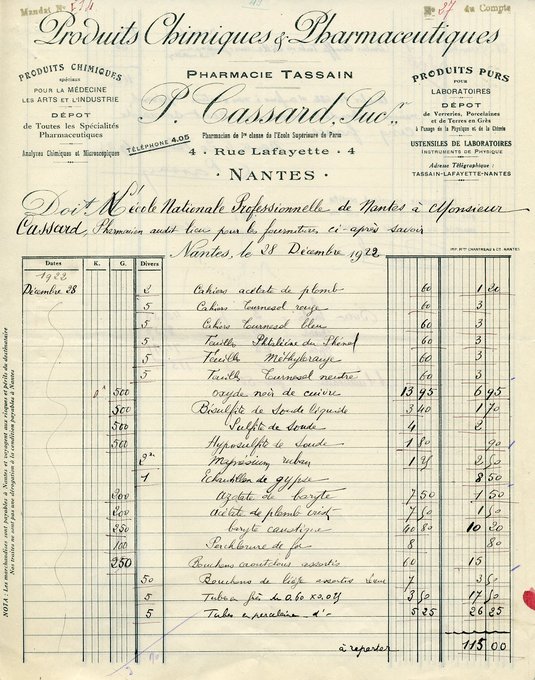 Mandat N°
N° 27 du Compte
Produits Chimiques & Pharmaceutiques
PRODUITS CHIMIQUES
spéciaux
POUR LA MÉDECINE
LES ARTS ET L'INDUSTRIE
DÉPOT
de Toutes les Spécialités
Pharmaceutiques
Analyses Chimiques et Microscopiques
PHARMACIE TASSAIN
P. Cassard, Succr
TÉLÉPHONE 4.05
Pharmacien de 1re classe de l'École Supérieure de Paris
4 - Rue Lafayette - 4
NANTES
PRODUITS PURS
POUR
LABORATOIRES
DÉPOT
de Verreries, Porcelaines
et de Terres en Grès
à l'usage de la Physique et de la Chimie
USTENSILES DE LABORATOIRES
INSTRUMENTS DE PHYSIQUE
Adresse Télégraphique :
TASSAIN-LAFAYETTE-NANTES
Doit M l'école Nationale Professionnelle de Nantes à Monsieur
Cassard, Pharmacien audit lieu pour les fournitures ci-après savoir
Nantes, le 28 Décembre 1922
Dates K. G. Divers
1922
Décembre 28 2 Cahiers acétate de plomb 60 1 20
5 Cahiers Tournesol rouge 60 3
5 Cahiers Tournesol bleu 60 3
5 Feuilles Phtaléine du Phénol 60 3
5 Feuilles Méthylorange 60 3
5 Feuilles Tournesol neutre 60 3
500 oxyde noir de cuivre 13 95 6 95
500 Bisulfite de soude liquide 3 40 1 70
500 Sulfite de soude 4 2
500 Hyposulfite de soude 1 80 90
2 Magnésium ruban 1 25 2 50
1 Echantillon de gypse 8 50
200 Azotate de baryte 7 50 1 50
200 acétate de plomb 7 50 1 50
250 baryte caustique 40 80 10 20
100 Perchlorure de fer 8 80
250 Bouchons caoutchouc assortis 60 15
50 Bouchons de liège assortis 7 3 50
5 Tubes en grès du 0.60 x 0.05 3 50 17 50
5 Tubes en porcelaine d° 5 25 26 25
à reporter 115 00
NOTA : Les marchandises sont payables à Nantes et voyagent aux risques et périls du destinataire
Nos traites ne sont pas une dérogation à la condition payables à Nantes.